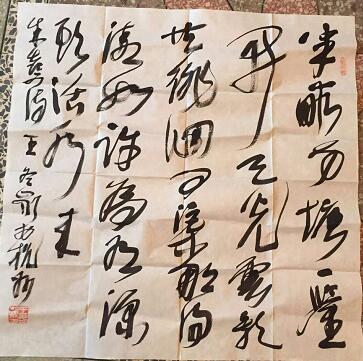 半畝方塘一鑒
開天光雲影
共徘徊问渠那得
清如許為有源
頭活水来
朱熹詩 王冬齡书杭州